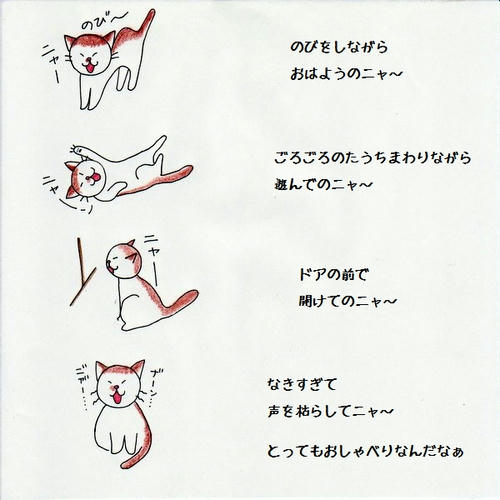 のび〜
ニャー
のびをしながら
おはようのニャ〜
ニャーン
ごろごろのたうちまわりながら
遊んでのニャ〜
ニャー
ドアの前で
開けてのニャ〜
なきすぎて
声を枯らしてニャ〜
とってもおしゃべりなんだなぁ